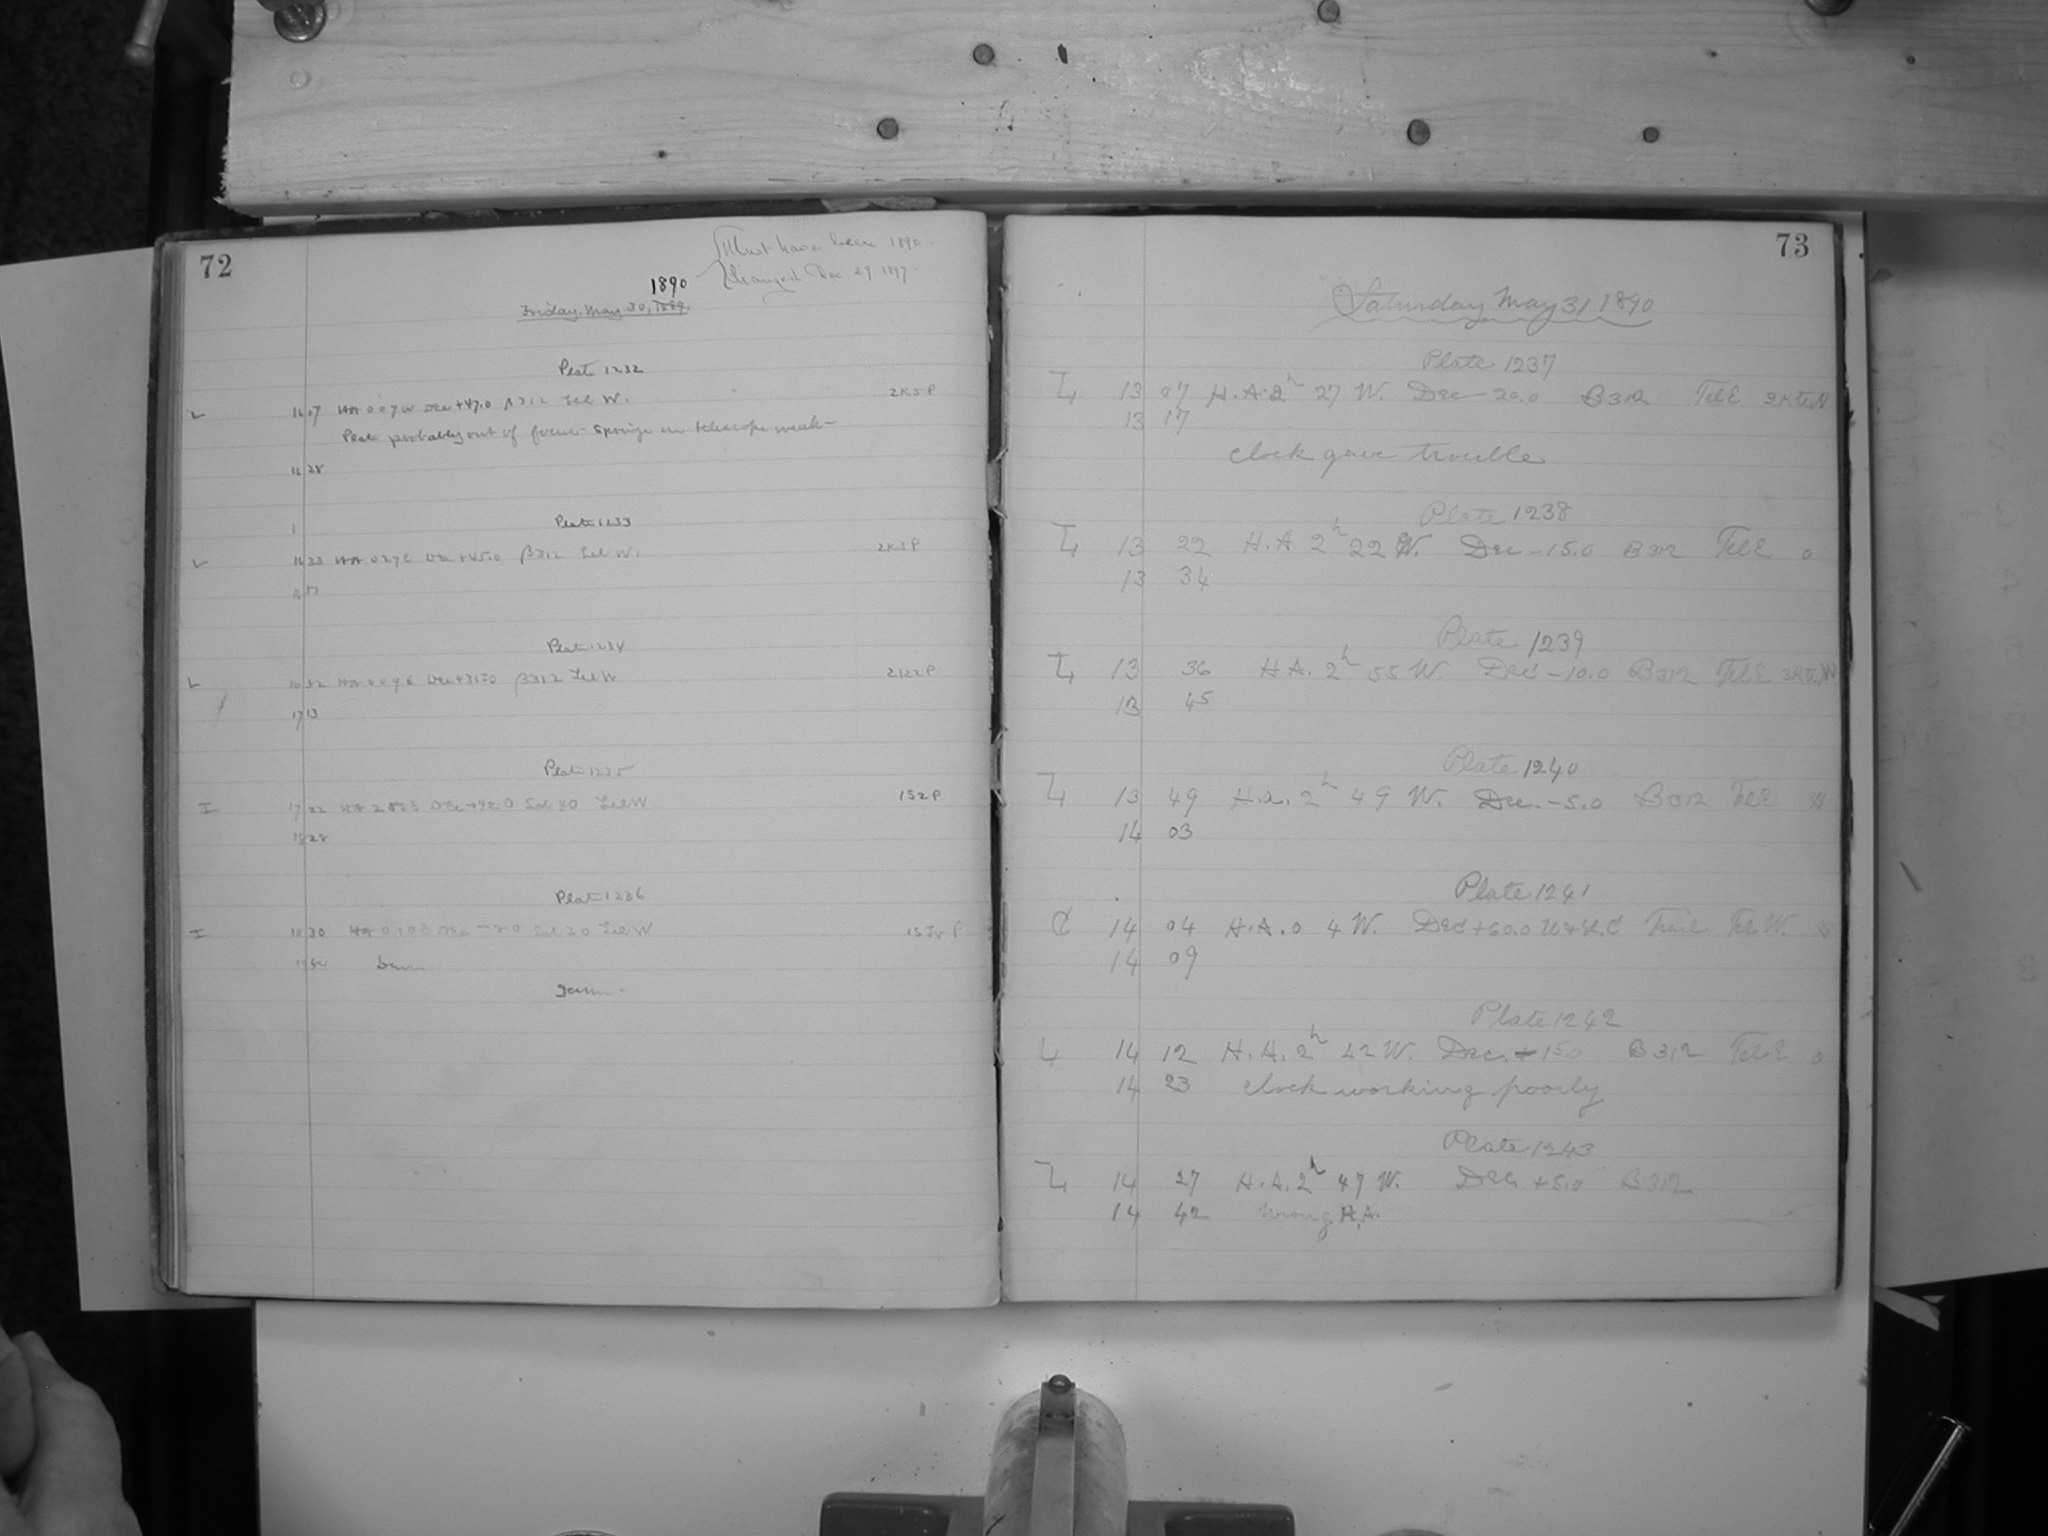 72
Must have been 1890
Changed Dec 29 1897
1890
Friday, May 30, 1889.
Plate 1232
16 07 HA 0 07 W Dec +47.0 β312 Tel W. 2K5P
Plate probably out of focus - springs on telescope weak -
16 28
Plate 1233
16 33 HA 0 27 E Dec +45.0 β312 Tel W. 2K3P
16 51
Plate 1234
16 52 HA 0 09 E β312 Tel W 2K2P
17 13
Plate 1235
I 17 22 HA Tel W 1S2P
18 28
Plate 1236
I 18 30 HA Tel W
Dawn
73
Saturday May 31 1890
Plate 1237
13 07 H.A. 2h 27 W. Dec -20.0 B312 Tel E
13 17
clock gave trouble
Plate 1238
13 22 H.A 2h 22 W. Dec -15.0 B312 Tel E 0
13 34
Plate 1239
13 36 H.A. 2h 55 W. Dec -10.0 B312 Tel E
13 45
Plate 1240
13 49 H.A. 2h 49 W. Dec. -5.0 B312 Tel E
14 03
Plate 1241
C 14 04 H.A. 0 4 W. Dec +60.0 Trail Tel W.
14 09
Plate 1242
14 12 H.A. 2h 42 W. Dec. +15.0 B312 Tel E 0
14 23 clock working poorly
Plate 1243
14 27 H.A. 2h 47 W. Dec. +5.0 B312
14 42 Wrong H.A.